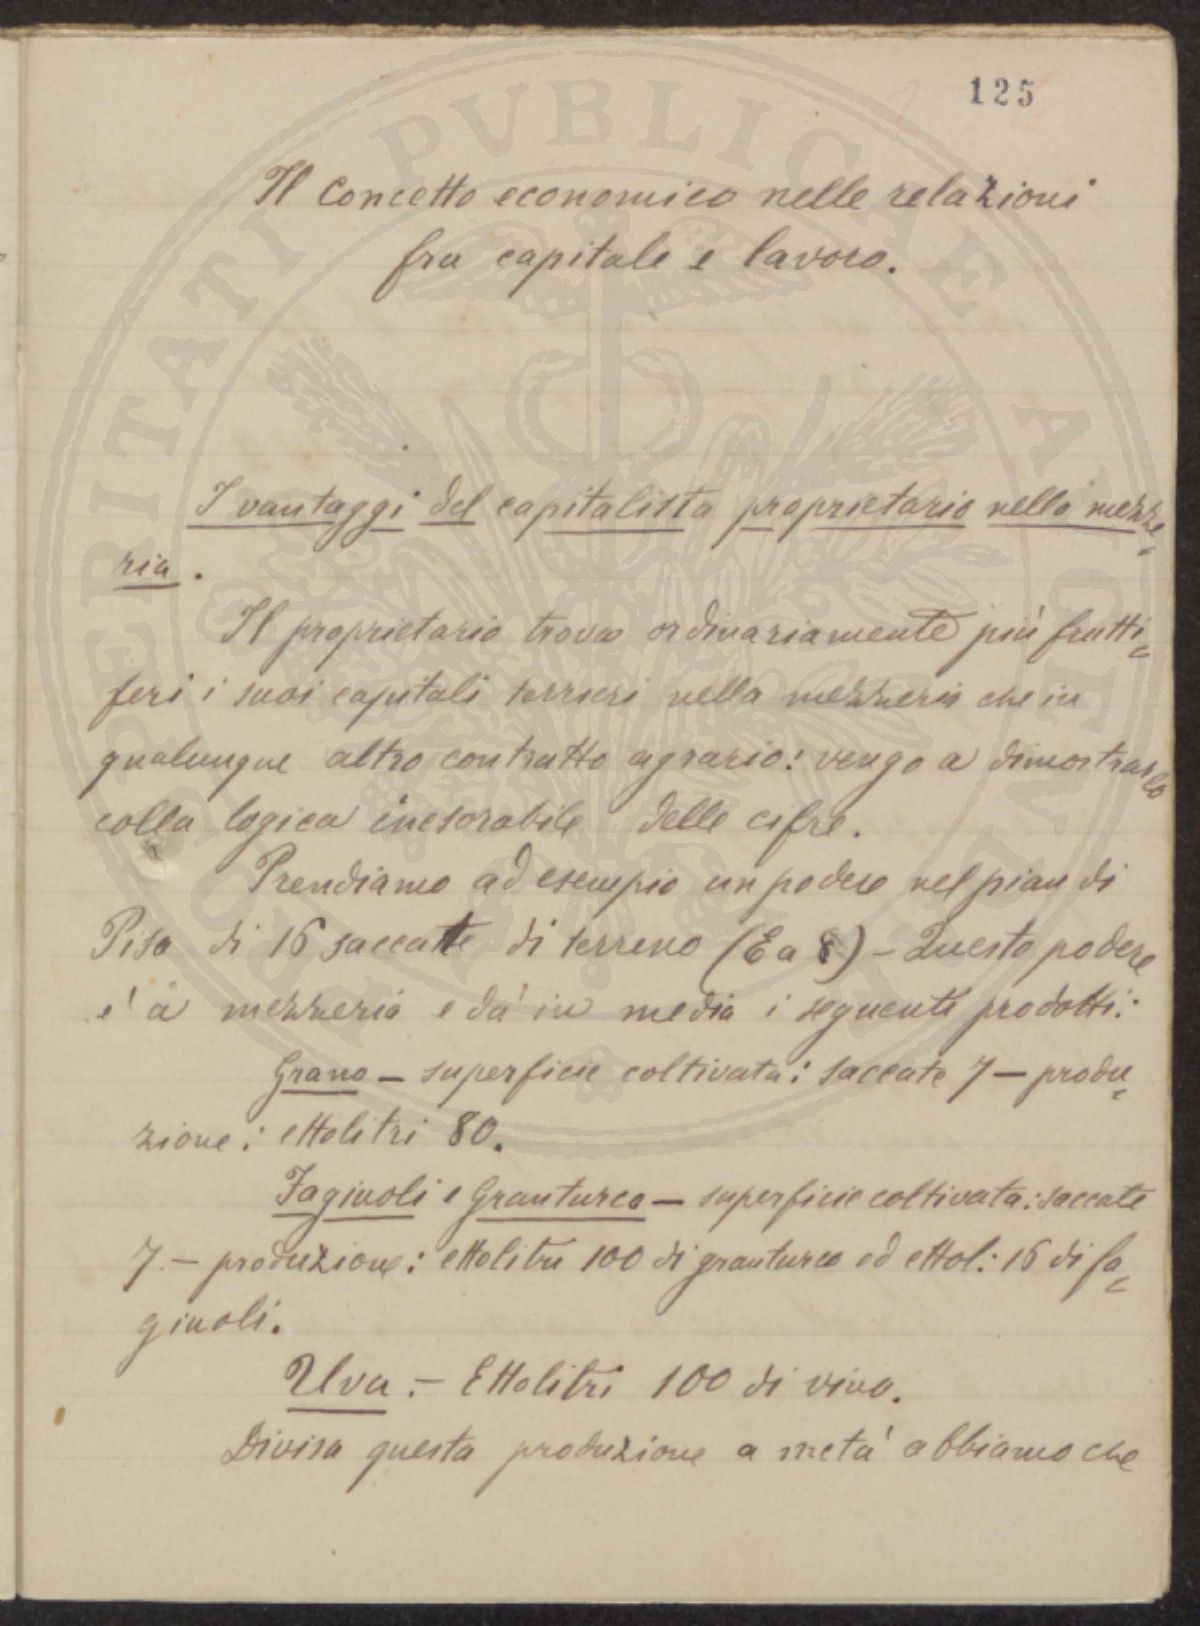 125
Il Concetto economico nelle relazioni
fra capitale e lavoro.
I vantaggi del capitalista proprietario nella mezze=
ria.
Il proprietario trova ordinariamente più frutti=
feri i suoi capitali terrieri nella mezzeria che in
qualunque altro contratto agrario: vengo a dimostrarlo
colla logica inesorabile delle cifre.
Prendiamo ad esempio un podere nel pian di
Pisa di 16 saccate di terreno (Ea 8) - Questo podere
e' a mezzeria e da' in media i seguenti prodotti:
Grano - superficie coltivata: saccate 7 - produ=
zione: ettolitri 80.
Fagiuoli e Granturco - superficie coltivata: saccate
7. - produzione: ettolitri 100 di granturco ed ettol: 16 di fa=
giuoli.
Uva. - Ettolitri 100 di vino.
Divisa questa produzione a metà abbiamo che
PROSPERITATI PVBLICAE AVGENDAE